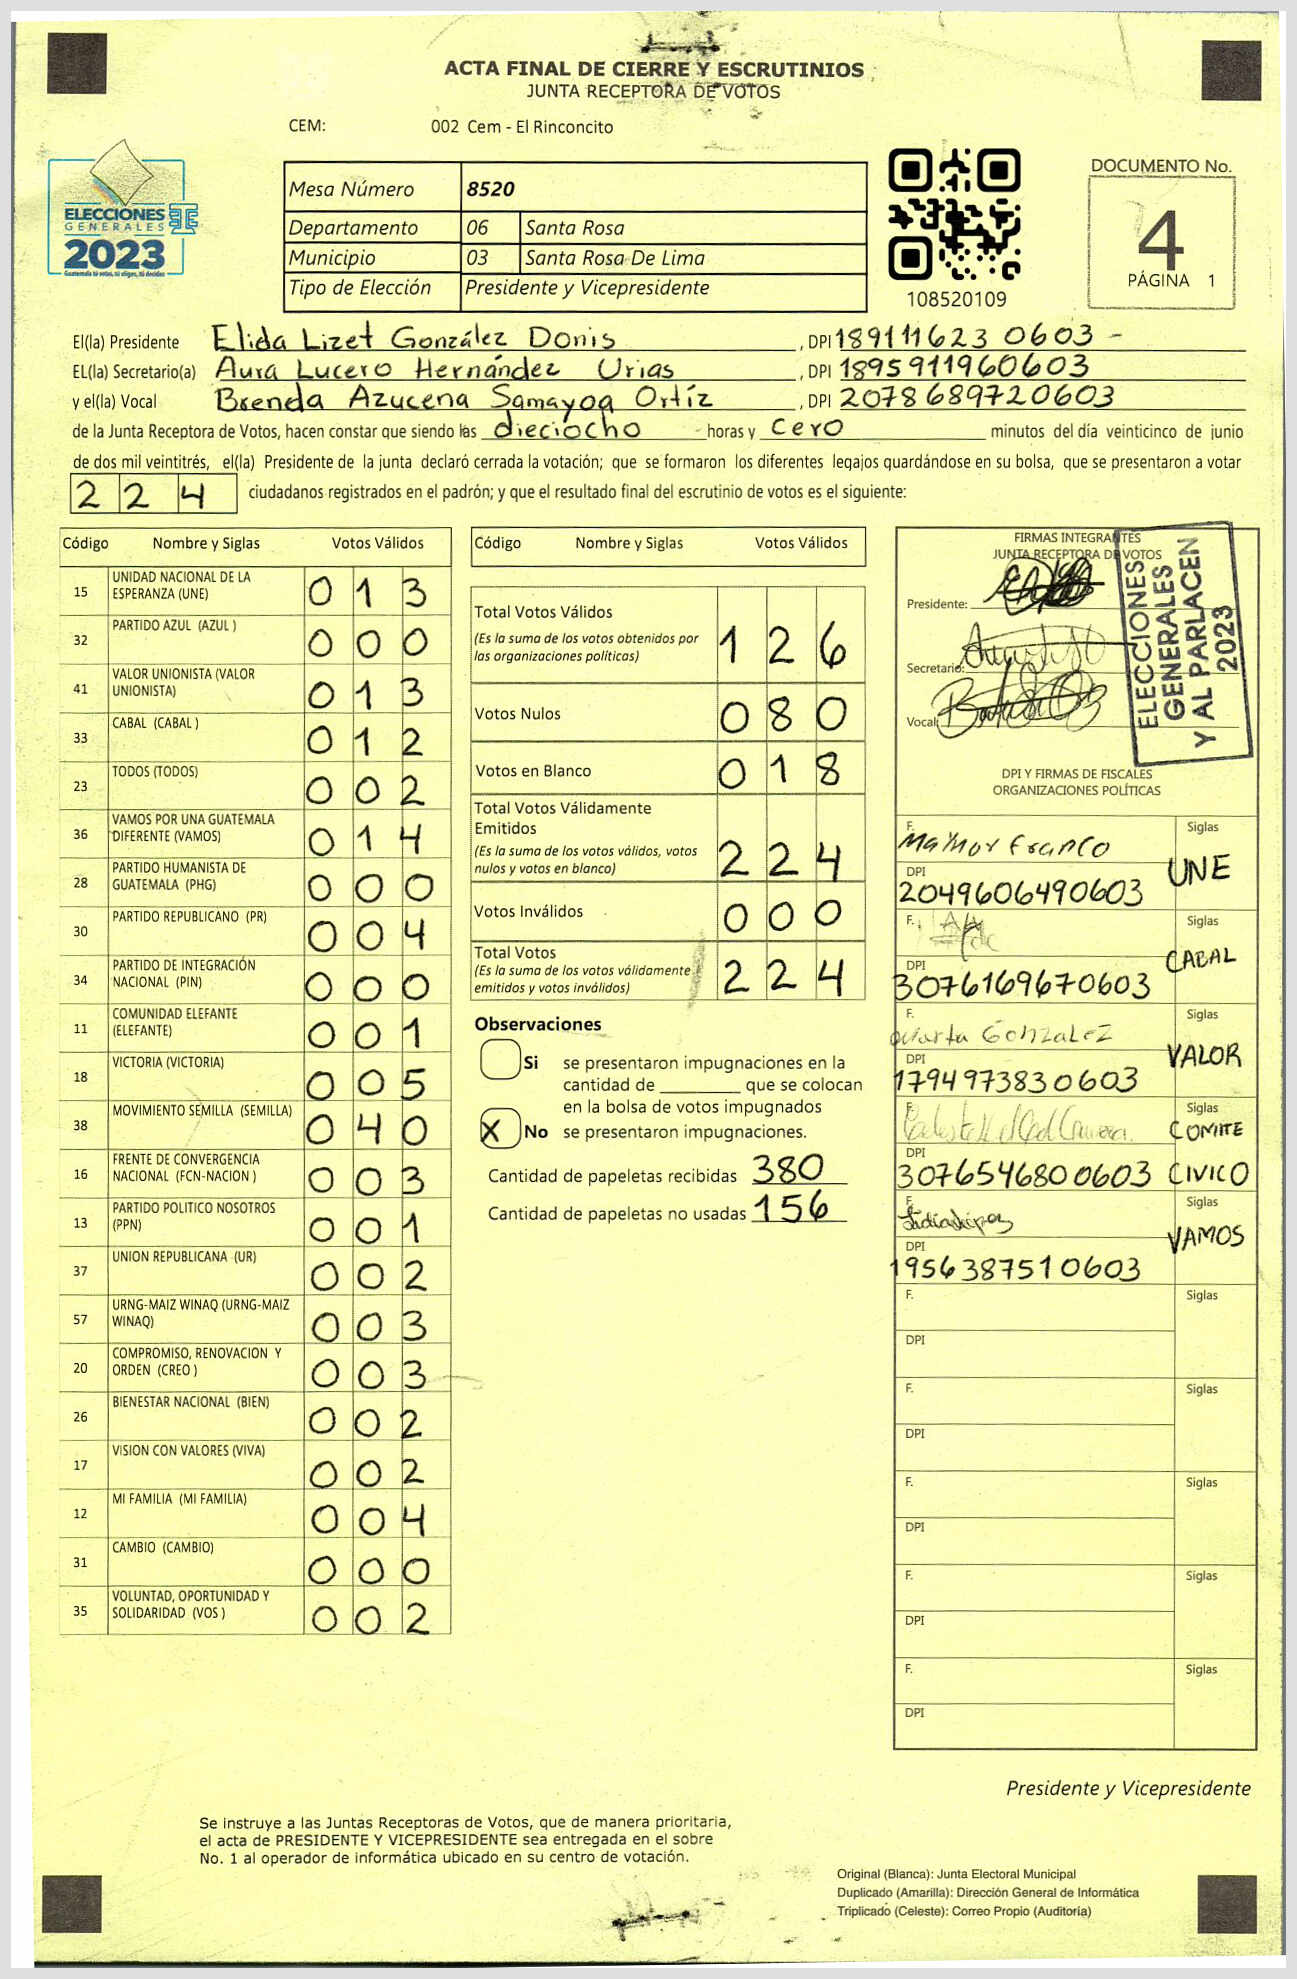 ACTA FINAL DE CIERRE Y ESCRUTINIOS
JUNTA RECEPTORA DE VOTOS
CEM: 002 Cem - El Rinconcito
ELECCIONES
GENERALES
2023
Guatemala tú votas, tú eliges, tú decides
Mesa Número 8520
Departamento 06 Santa Rosa
Municipio 03 Santa Rosa De Lima
Tipo de Elección Presidente y Vicepresidente
108520109
DOCUMENTO No.
4
PÁGINA 1
El(la) Presidente Elida Lizet González Donis, DPI 189111623 0603 -
EL(la) Secretario(a) Aura Lucero Hernández Urias, DPI 1895911960603
y el(la) Vocal Brenda Azucena Samayoa Ortíz, DPI 2078689720603
de la Junta Receptora de Votos, hacen constar que siendo las dieciocho horas y cero minutos del día veinticinco de junio
de dos mil veintitrés, el(la) Presidente de la junta declaró cerrada la votación; que se formaron los diferentes legajos quardándose en su bolsa, que se presentaron a votar
224 ciudadanos registrados en el padrón; y que el resultado final del escrutinio de votos es el siguiente:
Código Nombre y Siglas Votos Válidos
15 UNIDAD NACIONAL DE LA ESPERANZA (UNE) 013
32 PARTIDO AZUL (AZUL ) 000
41 VALOR UNIONISTA (VALOR UNIONISTA) 013
33 CABAL (CABAL ) 012
23 TODOS (TODOS) 002
36 VAMOS POR UNA GUATEMALA DIFERENTE (VAMOS) 014
28 PARTIDO HUMANISTA DE GUATEMALA (PHG) 000
30 PARTIDO REPUBLICANO (PR) 004
34 PARTIDO DE INTEGRACIÓN NACIONAL (PIN) 000
11 COMUNIDAD ELEFANTE (ELEFANTE) 001
18 VICTORIA (VICTORIA) 005
38 MOVIMIENTO SEMILLA (SEMILLA) 040
16 FRENTE DE CONVERGENCIA NACIONAL (FCN-NACION ) 003
13 PARTIDO POLITICO NOSOTROS (PPN) 001
37 UNION REPUBLICANA (UR) 002
57 URNG-MAIZ WINAQ (URNG-MAIZ WINAQ) 003
20 COMPROMISO, RENOVACION Y ORDEN (CREO ) 003
26 BIENESTAR NACIONAL (BIEN) 002
17 VISION CON VALORES (VIVA) 002
12 MI FAMILIA (MI FAMILIA) 004
31 CAMBIO (CAMBIO) 000
35 VOLUNTAD, OPORTUNIDAD Y SOLIDARIDAD (VOS ) 002
Código Nombre y Siglas Votos Válidos
Total Votos Válidos 126
(Es la suma de los votos obtenidos por
las organizaciones políticas)
Votos Nulos 080
Votos en Blanco 018
Total Votos Válidamente
Emitidos 224
(Es la suma de los votos válidos, votos
nulos y votos en blanco)
Votos Inválidos 000
Total Votos 224
(Es la suma de los votos válidamente
emitidos y votos inválidos)
Observaciones
Si se presentaron impugnaciones en la
cantidad de ________ que se colocan
en la bolsa de votos impugnados
X No se presentaron impugnaciones.
Cantidad de papeletas recibidas 380
Cantidad de papeletas no usadas 156
FIRMAS INTEGRANTES
JUNTA RECEPTORA DE VOTOS
Presidente:
Secretario:
Vocal:
ELECCIONES
GENERALES
Y AL PARLACEN
2023
DPI Y FIRMAS DE FISCALES
ORGANIZACIONES POLÍTICAS
F. Maynor Franco Siglas
DPI 2049606490603 UNE
F. Siglas
DPI 3076169670603 CABAL
F. Marta Gonzalez Siglas
DPI 1794973830603 VALOR
F. Siglas
DPI 3076546800603 COMITE CIVICO
F. Siglas
DPI 1956387510603 VAMOS
F. Siglas
DPI
F. Siglas
DPI
F. Siglas
DPI
F. Siglas
DPI
F. Siglas
DPI
Presidente y Vicepresidente
Se instruye a las Juntas Receptoras de Votos, que de manera prioritaria,
el acta de PRESIDENTE Y VICEPRESIDENTE sea entregada en el sobre
No. 1 al operador de informática ubicado en su centro de votación.
Original (Blanca): Junta Electoral Municipal
Duplicado (Amarilla): Dirección General de Informática
Triplicado (Celeste): Correo Propio (Auditoría)